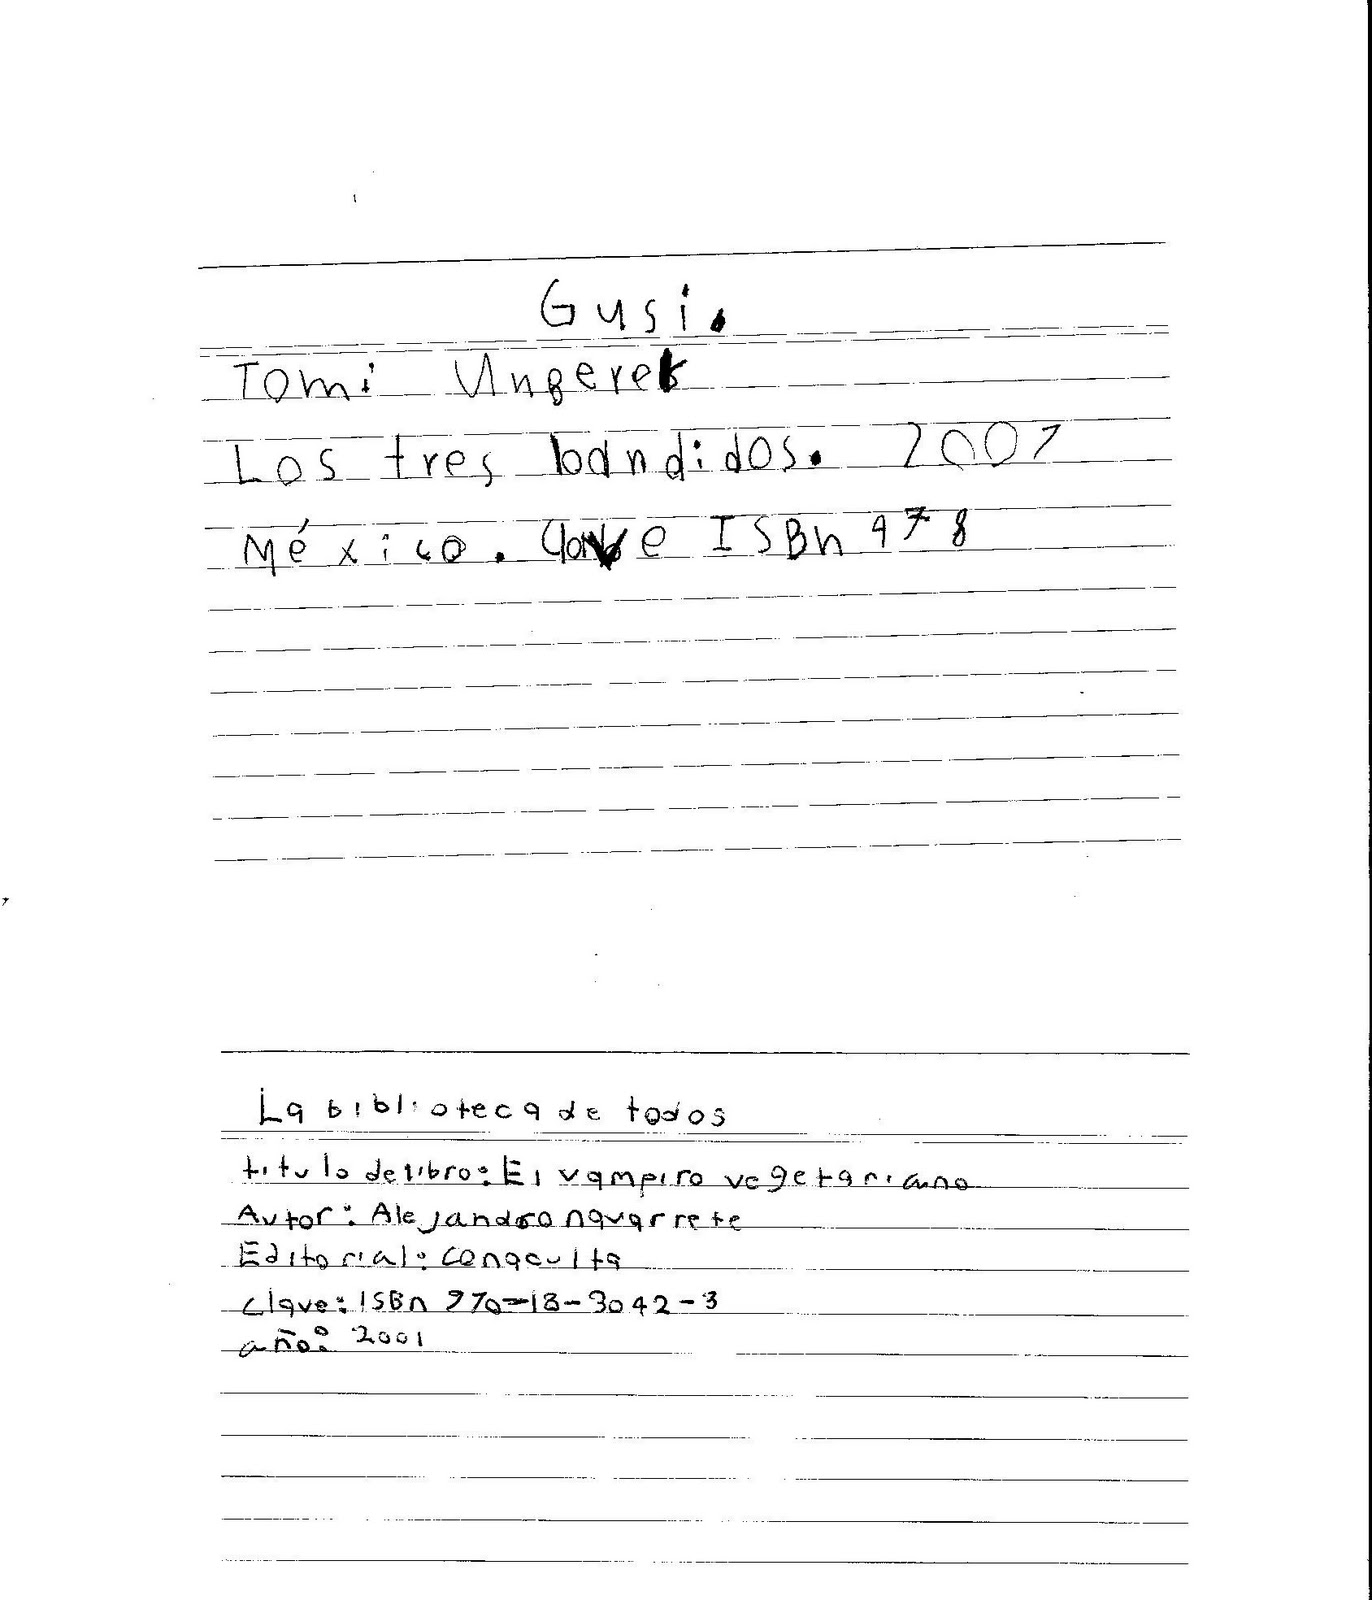 Gusi.
Tomi Ungerer
Los tres bandidos. 2007
México. Clave ISBn 978
La biblioteca de todos
titulo de libro: El vampiro vegetariano
Autor: Alejandro navarrete
Editorial: conaculta
clave: ISBn 970-18-3042-3
año: 2001